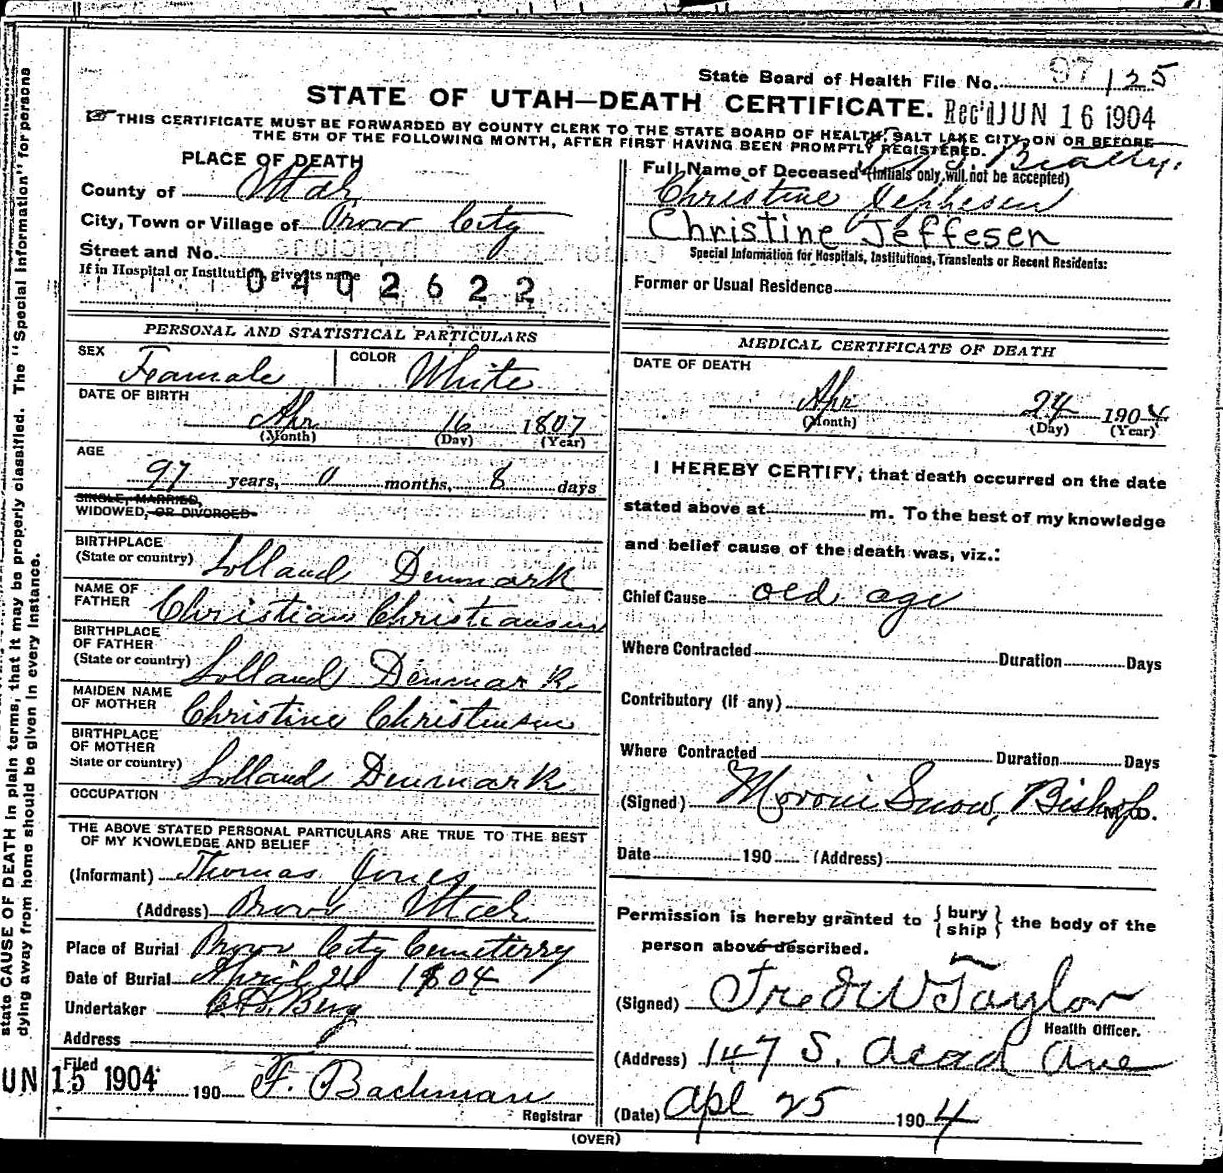 State Board of Health File No. 97 125
STATE OF UTAH—DEATH CERTIFICATE. Rec'd JUN 16 1904
THIS CERTIFICATE MUST BE FORWARDED BY COUNTY CLERK TO THE STATE BOARD OF HEALTH, SALT LAKE CITY, ON OR BEFORE
THE 5TH OF THE FOLLOWING MONTH, AFTER FIRST HAVING BEEN PROMPTLY REGISTERED.
PLACE OF DEATH
County of Utah
City, Town or Village of Provo City
Street and No.
If in Hospital or Institution, give its name
0402622
Full Name of Deceased (Initials only will not be accepted)
Christine Jephesen
Christine Jeffesen
Special Information for Hospitals, Institutions, Transients or Recent Residents:
Former or Usual Residence
PERSONAL AND STATISTICAL PARTICULARS
SEX Feamale COLOR White
DATE OF BIRTH
Apr 16 1807
(Month) (Day) (Year)
AGE
97 years, 0 months, 8 days
SINGLE, MARRIED,
WIDOWED, OR DIVORCED
BIRTHPLACE
(State or country) Lolland Denmark
NAME OF
FATHER Christian Christiansen
BIRTHPLACE
OF FATHER
(State or country) Lolland Denmark
MAIDEN NAME
OF MOTHER Christine Christensen
BIRTHPLACE
OF MOTHER
State or country) Lolland Denmark
OCCUPATION
THE ABOVE STATED PERSONAL PARTICULARS ARE TRUE TO THE BEST
OF MY KNOWLEDGE AND BELIEF
(Informant) Thomas Jones
(Address) Provo Utah
Place of Burial Provo City Cemeterry
Date of Burial April 24 1904
Undertaker Berg
Address
Filed
JUN 15 1904 190 F. Bachman
Registrar
MEDICAL CERTIFICATE OF DEATH
DATE OF DEATH
Apr 24 1904
(Month) (Day) (Year)
I HEREBY CERTIFY, that death occurred on the date
stated above at m. To the best of my knowledge
and belief cause of the death was, viz.:
Chief Cause old age
Where Contracted Duration Days
Contributory (if any)
Where Contracted Duration Days
(Signed) Moroni Snow, Bishop M.D.
Date 190 (Address)
Permission is hereby granted to { bury ship } the body of the
person above described.
(Signed) Fred W Taylor
Health Officer.
(Address) 147 S. Acad Ave
(Date) Apl 25 1904
(OVER)
state CAUSE OF DEATH in plain terms, that it may be properly classified. The "Special Information" for persons
dying away from home should be given in every instance.